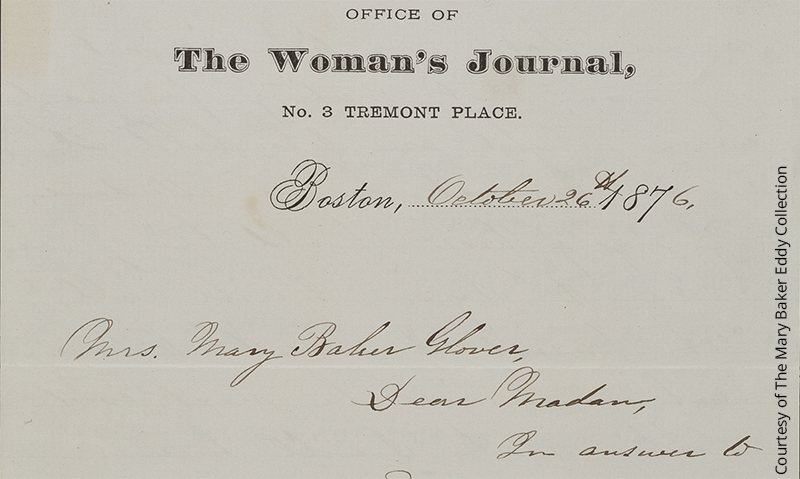 OFFICE OF
The Woman's Journal,
No. 3 TREMONT PLACE.
Boston, October 26th 1876,
Mrs. Mary Baker Glover,
Dear Madam,
In answer to
Courtesy of The Mary Baker Eddy Collection